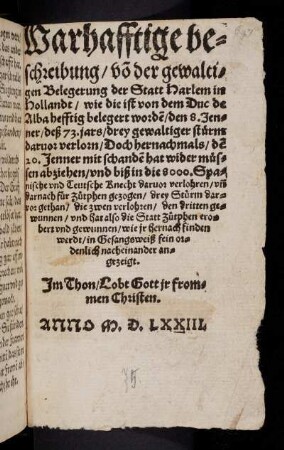 Warhafftige be-
schreibung / võ der gewalti-
gen Belegerung der Statt Harlem in
Hollandt / wie die ist von dem Duc de
Alba hefftig belegert wordẽ / den 8. Jen-
ner / deß 73. jars / drey gewaltiger stürm
daruor verlorn / Doch hernachmals / dẽ
20. Jenner mit schandẽ hat wider müs-
sen abziehen / vnd biß in die 8000. Spa-
nische vnd Teutsche Knecht daruor verlohren / vñ
darnach für Zürphen gezogen / drey Stürm dar-
vor gethan / die zwen verlohren / den dritten ge-
wunnen / vnd hat also die Statt Zürphen ero-
bert vnd gewunnen / wie jr hernach finden
werdt / in Gesangsweiß fein or-
denlich nacheinander an-
gezeigt.
Im Thon / Lobt Gott jr from-
men Christen.
ANNO M. D. LXXIII.